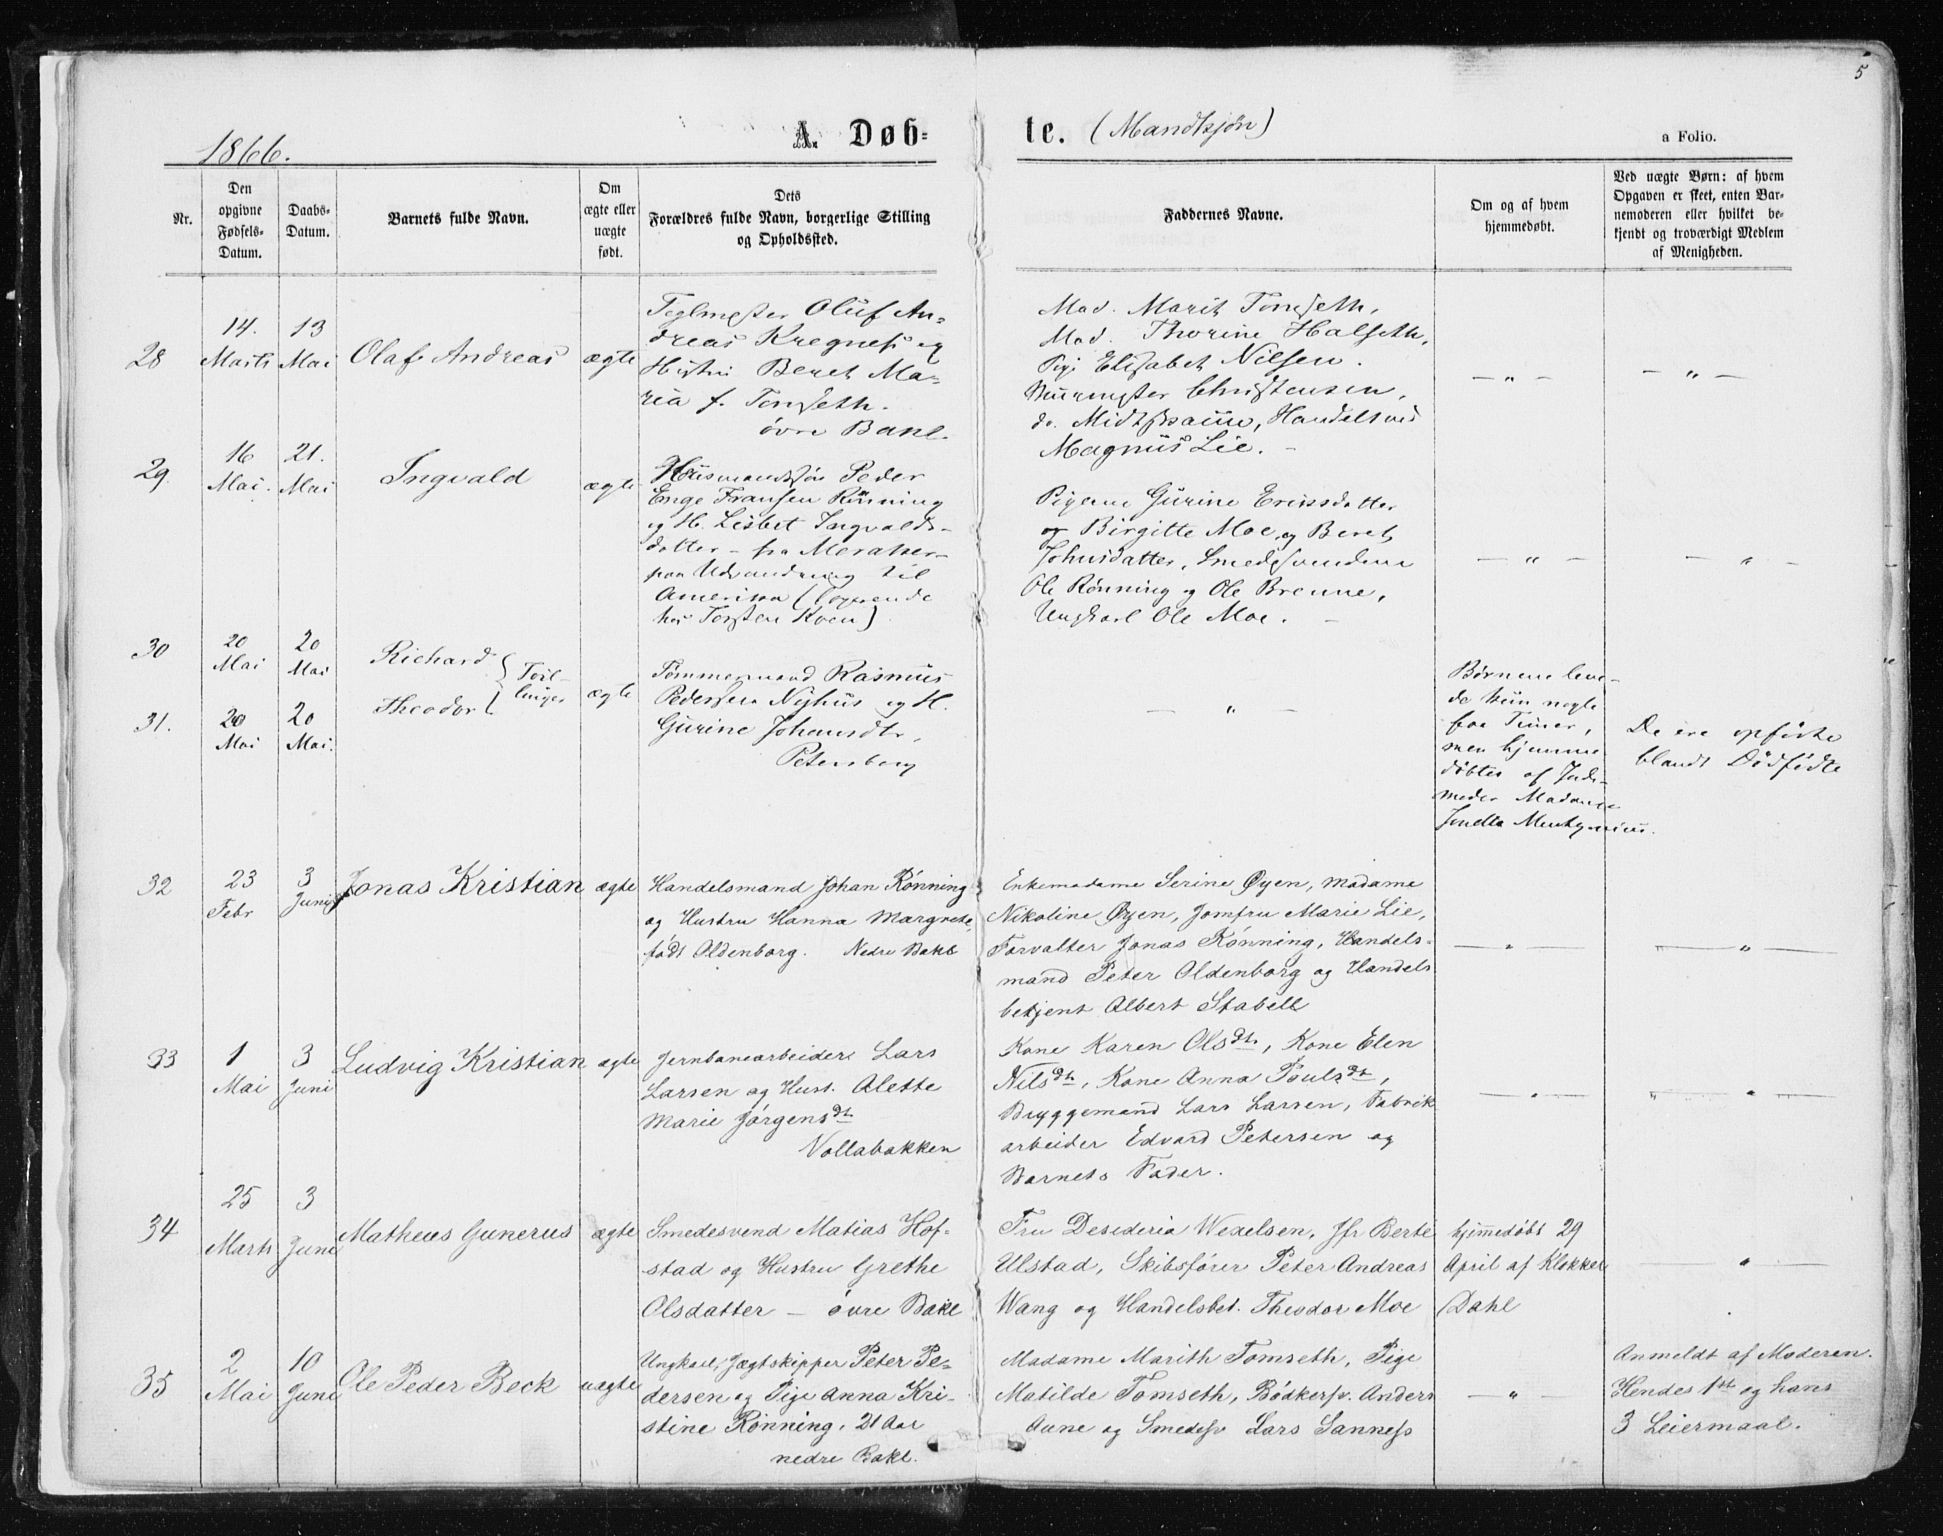 5
1866.
A. Døb=
te. (Mandkjøn)
a Folio.
Nr.
Den opgivne Fødsels-Datum.
Daabs-Datum.
Barnets fulde Navn.
Om ægte eller uægte født.
Dets Forældres fulde Navn, borgerlige Stilling og Opholdssted.
Faddernes Navne.
Om og af hvem hjemmedøbt.
Ved uægte Børn: af hvem Opgaven er skeet, enten Barnemoderen eller hvilket bekjendt og troværdigt Medlem af Menigheden.
28
14. Marts
13 Mai
Olaf Andreas
ægte
Teglmester Oluf An=
dreas Kregnes og
Hustru Beret Ma=
ria f. Tomseth.
øvre Bakl.
Mad. Marit Tomseth,
Mad. Thorine Halseth,
Pige Elisabet Nilsen.
Muurmester Christensen,
do. Midtsaune, Handelsmd
Magnus Lie. –
— „ —
— „ —
29.
16 Mai.
21. Mai
Ingvald
ægte
Husmandssøn Peder
Enge Fransen Rønning
og H. Lisbet Ingvalds-
datter – fra Meraker –
paa Udvandring til
Amerika (logerende
hos Torsten Kven)
Pigerne Gurine Eriksdatter
og Birgitte Moe og Beret
Johnsdatter, Smedesvendene
Ole Rønning og Ole Brenne,
Ungkarl Ole Moe. –
— „ —
— „ —
30
20 Mai
20 Mai
Richard
31.
20 Mai
20 Mai.
Theodor
Tvil-
linger
ægte
Tømmermand Rasmus
Pedersen Nyhus og H.
Gurine Johansdtr,
Petersborg
— „ —
Børnene leve-
de kun nogle
faa Timer,
men hjemme
døbtes af Jorde-
moder Madame
De ere opførte
blandt Dødfødte
32
23 Febr
3 Juni
Jonas Kristian
ægte
Handelsmand Johan Rønning
og Hustru Hanna Margrete,
født Oldenborg. Nedre Bakl.
Enkemadame Serine Øyen, Madame
Nikoline Øyen, Jomfru Marie Lie,
Forvalter Jonas Rønning, Handels-
mand Peter Oldenborg og Handels
betjent Albert Stabell
— „ —
„ — „ —
33
1 Mai
3 Juni
Ludvig Kristian
ægte
Jernbanearbeider Lars
Larsen og Hust. Alette
Marie Jørgensdt.
Vollabakken
Kone Karen Olsdt., Kone Elen
Nilsdt., Kone Anna Poulsdt,
Bryggemand Lars Larsen, Fabrik
arbeider Edvard Petersen og
Barnets Fader.
— „ —
„ — „ —
34
25 Marts
3 Juni
Matheus Gunerus
ægte
Smedesvend Matias Hof-
stad og Hustru Grethe
Olsdatter – øvre Bakl
Fru Desideria Wexelsen, Jfr Berte
Ulstad, Skibsfører Peter Andreas
Wang og Handelsbet. Theodor Moe
hjemmedøbt 29
April af Klokker
Dahl
— „ —
35
2 Mai
10 Juni
Ole Peder Beck
uægte
Ungkarl, Jægtskipper Peter Pe-
dersen og Pige Anna Kri-
stine Rønning, 21 Aar
nedre Bakl.
Madame Marith Tomseth, Pige
Matilde Tomseth, Bødkersv. Anders
Aune og Smedesv Lars Sannes
— „ —
Anmeldt af Moderen.
Hendes 1ste og hans
3 Leiermaal.